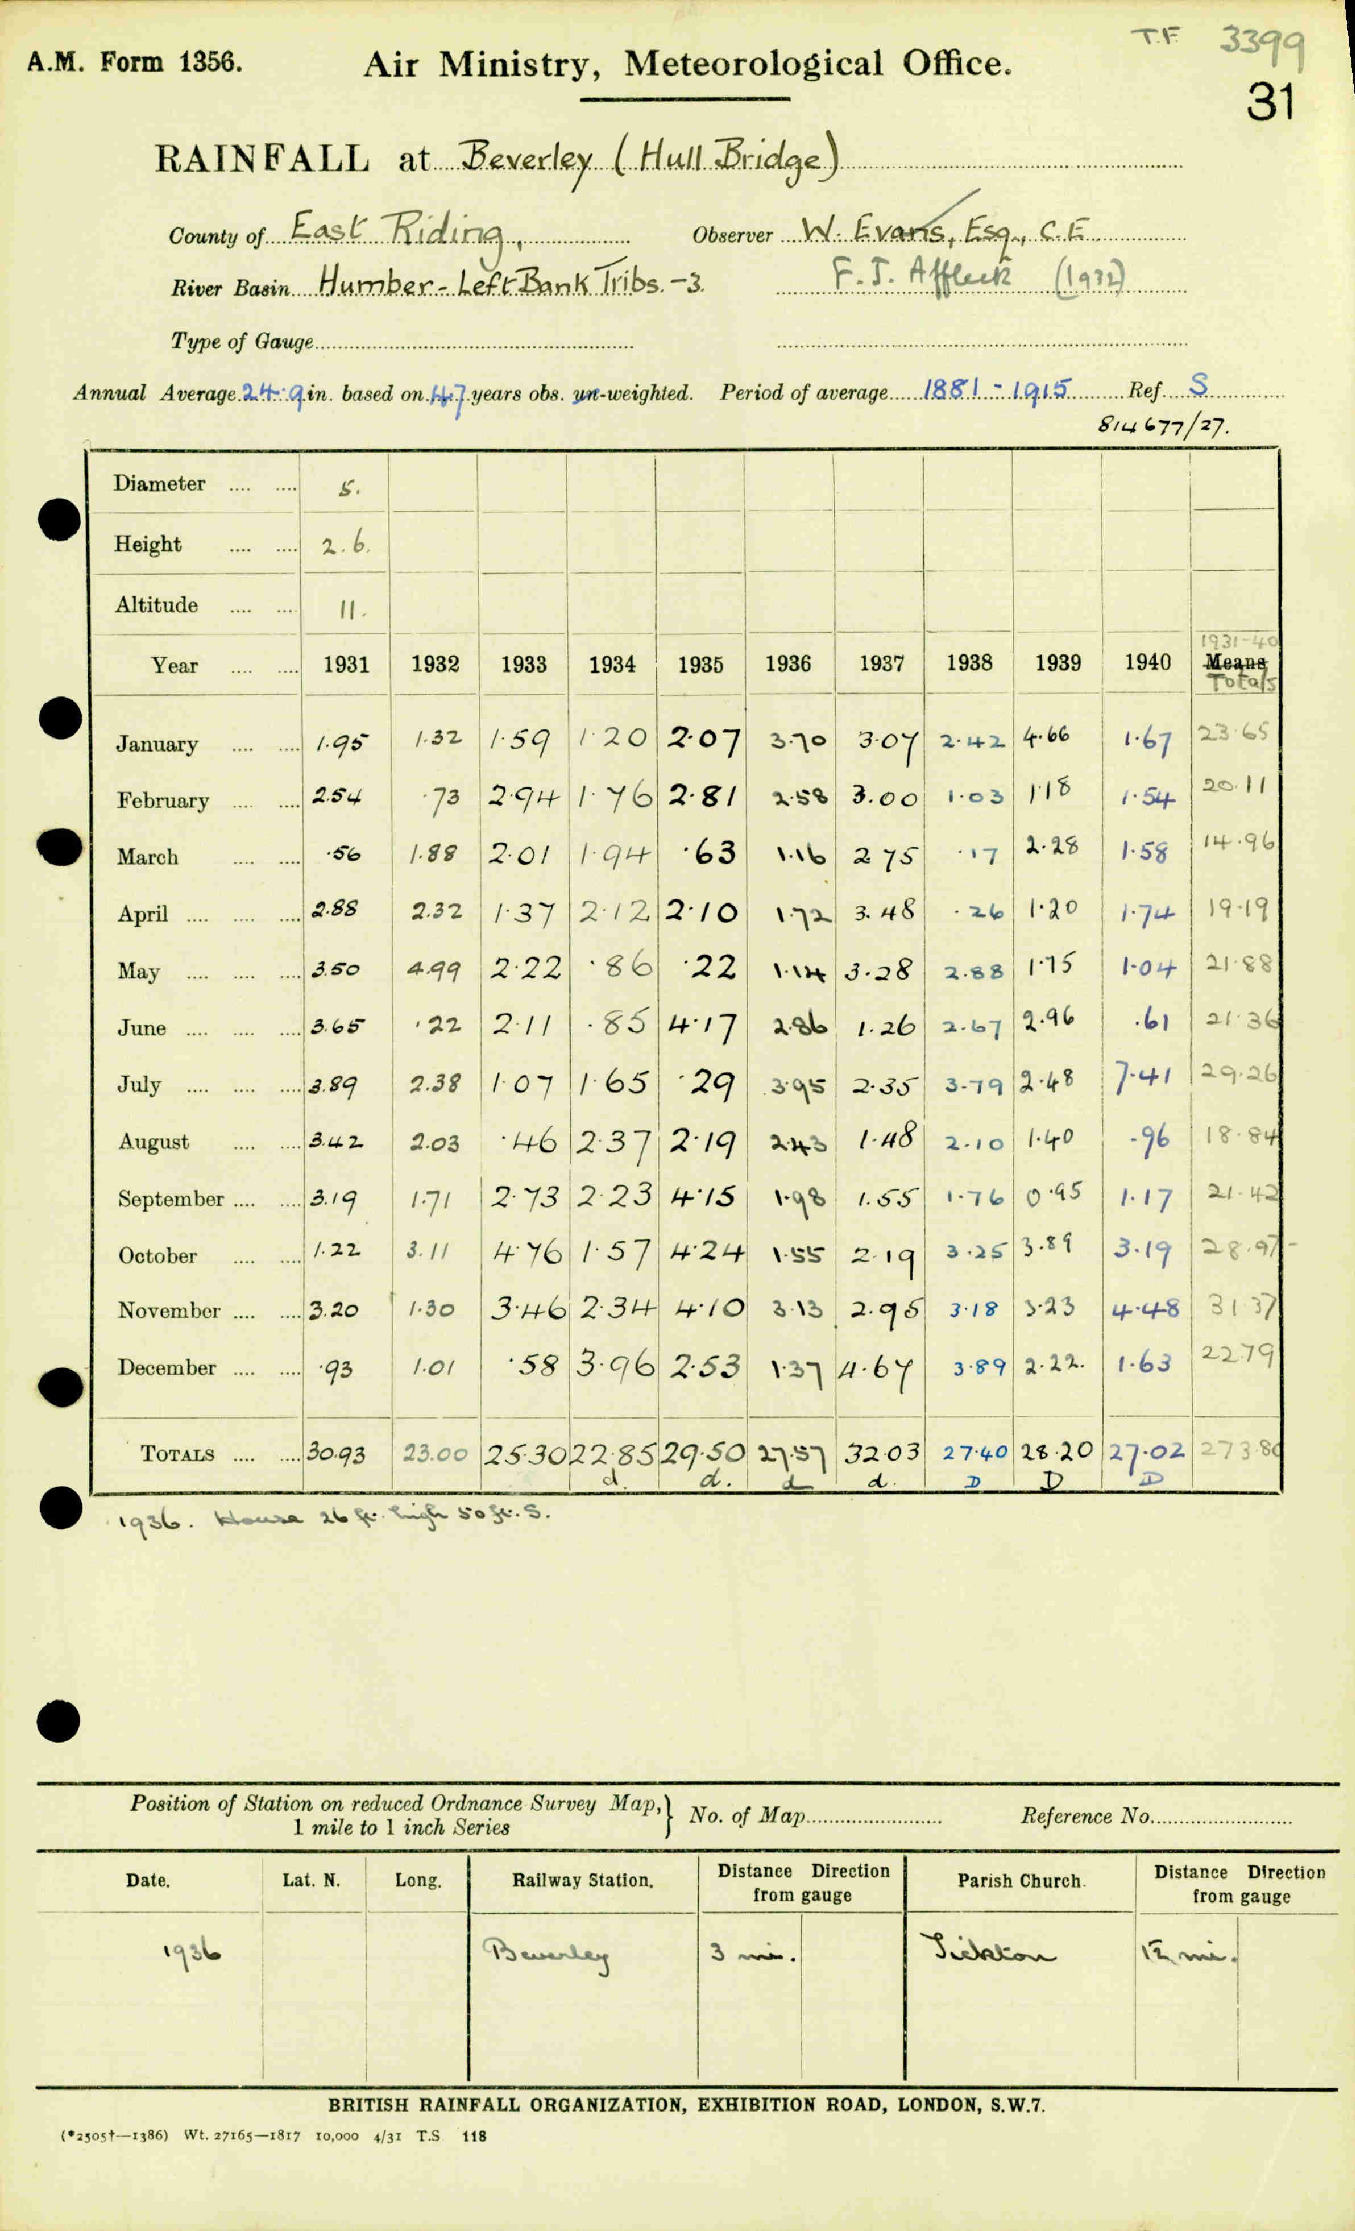 T.F. 3399
A.M. Form 1356. Air Ministry, Meteorological Office.
31
RAINFALL at Beverley (Hull Bridge)
County of East Riding, Observer W. Evans, Esq., C.E.
River Basin Humber - Left Bank Tribs. - 3. F. J. Affleck (1932)
Type of Gauge
Annual Average 24.9 in. based on 47 years obs. un-weighted. Period of average 1881 - 1915 Ref. S
814677/27.
Diameter .... .... 5.
Height .... .... 2.6.
Altitude .... .... 11.
1931-40
Year .... .... 1931 1932 1933 1934 1935 1936 1937 1938 1939 1940 Means
Totals
January .... .... 1.95 1.32 1.59 1.20 2.07 3.70 3.07 2.42 4.66 1.67 23.65
February .... .... 2.54 .73 2.94 1.76 2.81 2.58 3.00 1.03 1.18 1.54 20.11
March .... .... .56 1.88 2.01 1.94 .63 1.16 2.75 .17 2.28 1.58 14.96
April .... .... .... 2.88 2.32 1.37 2.12 2.10 1.72 3.48 .26 1.20 1.74 19.19
May .... .... .... 3.50 4.99 2.22 .86 .22 1.14 3.28 2.88 1.75 1.04 21.88
June .... .... .... 3.65 .22 2.11 .85 4.17 2.86 1.26 2.67 2.96 .61 21.36
July .... .... .... 3.89 2.38 1.07 1.65 .29 3.95 2.35 3.79 2.48 7.41 29.26
August .... .... 3.42 2.03 .46 2.37 2.19 2.43 1.48 2.10 1.40 .96 18.84
September .... .... 3.19 1.71 2.73 2.23 4.15 1.98 1.55 1.76 0.95 1.17 21.42
October .... .... 1.22 3.11 4.76 1.57 4.24 1.55 2.19 3.25 3.89 3.19 28.97
November .... .... 3.20 1.30 3.46 2.34 4.10 3.13 2.95 3.18 3.23 4.48 31.37
December .... .... .93 1.01 .58 3.96 2.53 1.37 4.67 3.89 2.22. 1.63 22.79
TOTALS .... .... 30.93 23.00 25.30 22.85 29.50 27.57 32.03 27.40 28.20 27.02 273.80
d. d. d d. D D D
1936. House 26 ft. high 50 ft. S.
Position of Station on reduced Ordnance Survey Map, } No. of Map Reference No.
1 mile to 1 inch Series
Date. Lat. N. Long. Railway Station. Distance Direction from gauge Parish Church. Distance Direction from gauge
1936 Beverley 3 mi. Tickton 1½ mi.
BRITISH RAINFALL ORGANIZATION, EXHIBITION ROAD, LONDON, S.W.7.
(*2505†—1386) Wt. 27165—1817 10,000 4/31 T.S. 118